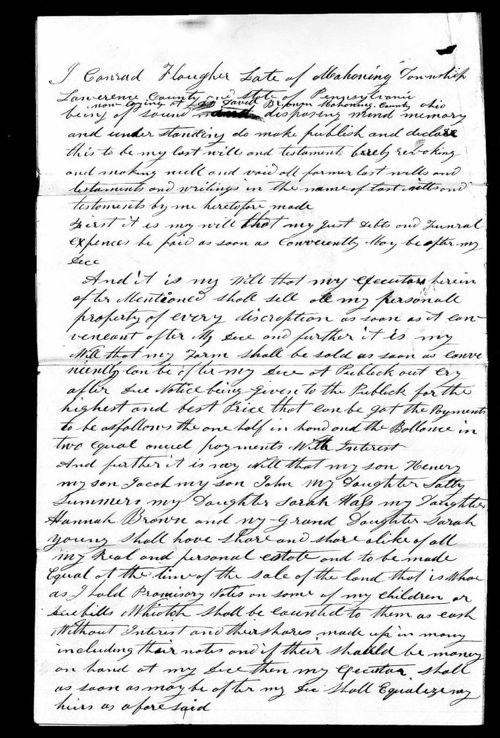 I Conrad Flougher Late of Mahoning Township
Lawerence County and State of Pennsylvania
now living at David Brown Mahoning County ohio
being of sound disposing mind memory
and under standing do make publish and declare
this to be my last will and testament herely revoking
and making null and void all former last wills and
testaments and writings in the name of last wills and
testoments by me heretofore made
First it is my will that my just Debts and Funral
Expences be paid as soon as Conveniently May be after my
Dece
And it is my Will that my Executors herein
after Mentioned shall sell all my personall
property of every discreption as soon as it con-
veneant after My Dece and further it is my
Will that my Farm shall be sold as soon as Conve
niently Can be after my Dece at Publick out Cry
after Due Notice being Given to the Publick for the
highest and best Price that Can be got the Payments
to be as follows the one half in hand and the Ballance in
two Equal anuel payments With Interest
And further it is my Will that my son Henery
my son Jacob my son John My Daughter Sally
Summers my Daughter Sarah Hass my Daughter
Hannah Brown and my Grand Daughter Sarah
Young shall have share and share alike of all
my real and personal estate and to be made
Equal at the time of the sale of the land that is Whare
as I hold Promisory Notes on some of my Children or
Due bills Whictch shall be Counted to them as cash
Without Interest and their shares made up in mony
including their notes and if their should be money
on hand at my Dece then my Executor shall
as soon as may be after my Dec shall Equalize my
heirs as afore said